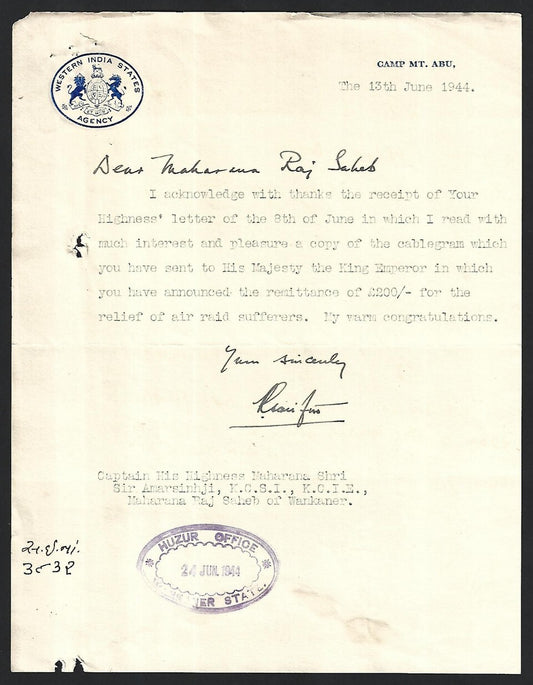 WESTERN INDIA STATES
AGENCY
CAMP MT. ABU,
The 13th June 1944.
Dear Maharana Raj Saheb
I acknowledge with thanks the receipt of Your
Highness' letter of the 8th of June in which I read with
much interest and pleasure a copy of the cablegram which
you have sent to His Majesty the King Emperor in which
you have announced the remittance of £200/- for the
relief of air raid sufferers. My warm congratulations.
Yours sincerely
Captain His Highness Maharana Shri
Sir Amarsinhji, K.C.S.I., K.C.I.E.,
Maharana Raj Saheb of Wankaner.
HUZUR OFFICE
24 JUN. 1944
STATE.